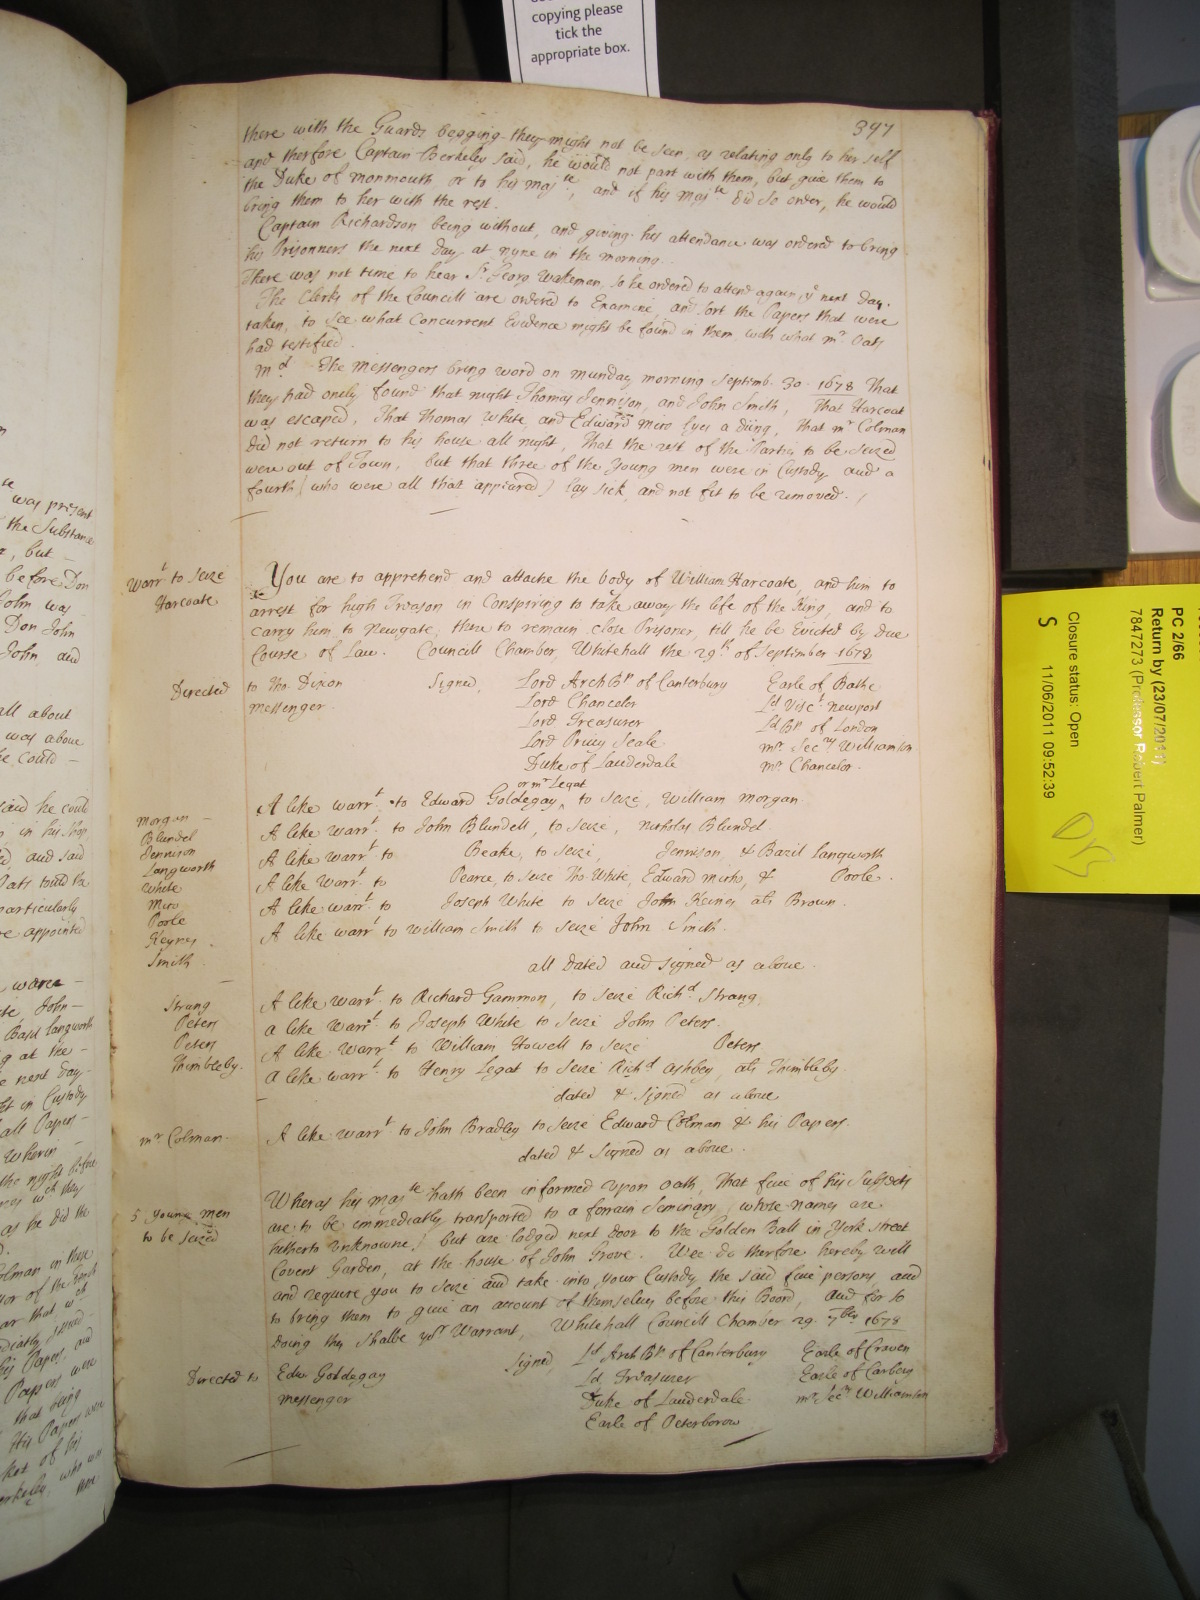 copying please
tick the
appropriate box.
397
there with the Guards begging they might not be seen, as relating only to her self
and therfore Captain Berkeley said, he would not part with them, but give them to
the Duke of Monmouth or to his Maj^te, and if his Maj^te did so order, he would
bring them to her with the rest.
Captain Richardson being without, and giving his attendance was ordered to bring
his Prisonners the next day, at nyne in the morning.
There was not time to hear S^r. Georg Wakeman, so he ordered to attend again, y^e next day.
The Clerks of the Councill are ordered to Examine, and sort the Papers that were
taken, to see what Concurrent Evidence might be found in them, with what m^r. Oats
had testified.
M^d The Messengers bring word on munday morning Septemb. 30. 1678 That
they had onely found that night Thomas Jennison, and John Smith, That Harcoat
was escaped, That Thomas White, and Edward Mico lyes a diing, That m^r Colman
did not return to his house all night, That the rest of the Parties to be seized
were out of Town, but that three of the young men were in Custody and a
fourth (who were all that appeared) lay sick, and not fit to be removed.
Warr^t to seize
Harcoate
You are to apprehend and attache the body of William Harcoate, and him to
arrest for high Treason in Conspiring to take away the life of the King, and to
carry him to Newgate, there to remain close Prisoner, till he be Evicted by due
Course of Law. Councill Chamber, Whitehall the 29^th of September 1678
Directed to Tho. Dixon Signed, Lord ArchB^p of Canterbury Earle of Bathe
messenger. Lord Chancelor L^d Visc^t Newport
Lord Treasurer L^d B^p of London
Lord Privy Seale m^r. Sec^ry Williamson
Duke of Lauderdale m^r. Chancelor.
or m^r Legat
Morgan A like warr^t to Edward Goldegay, to seize, William Morgan.
Blundel A like warr^t. to John Blundell, to seize, Nicholas Blundel
Jennison A like warr^t to Beake, to seize, Jennison, & Bazil Langworth
Langworth
White A like warr^t. to Pearce, to seize Tho. White, Edward Mico, & Poole.
Mico A like warr^t. to Joseph White to seize John Keines als Brown.
Poole
Keynes A like warr^t to William Smith to seize John Smith.
Smith
all dated and signed as above.
Strang A like warr^t. to Richard Gammon, to seize Rich^d. Strang.
Peters a like warr^t. to Joseph White to seize John Peters.
Peters A like warr^t to William Howell to seize Peters
Thimbleby. a like warr^t. to Henry Legat to seize Rich^d Ashby, als Thimbleby.
dated & signed as above
m^r Colman. A like warr^t to John Bradley to seize Edward Colman & his Papers.
dated & signed as above.
5 young men
to be seized
Wheras his Maj^te hath been informed upon oath, That five of his Subjects
are to be immediatly transported to a forrain Seminary (whose names are
hitherto unknowne,) but are lodged next door to the Golden Ball in York street
Covent Garden, at the house of John Grove. Wee do therfore hereby will
and require you to seize and take into your Custody the said five persons, and
to bring them to give an account of themselves before this Board, and for so
doing this shalbe yo^r Warrant, Whitehall Councill Chamber 29. 7^ber 1678
Directed to Edw. Goldegay Signed, L^d ArchB^p of Canterbury Earle of Craven
messenger L^d Treasurer Earle of Carbery
Duke of Lauderdale m^r. Sec^ry Williamson
Earle of Peterborow
PC 2/66
Return by (23/07/2011)
7847273 (Professor Robert Palmer)
Closure status: Open
S 11/06/2011 09:52:39